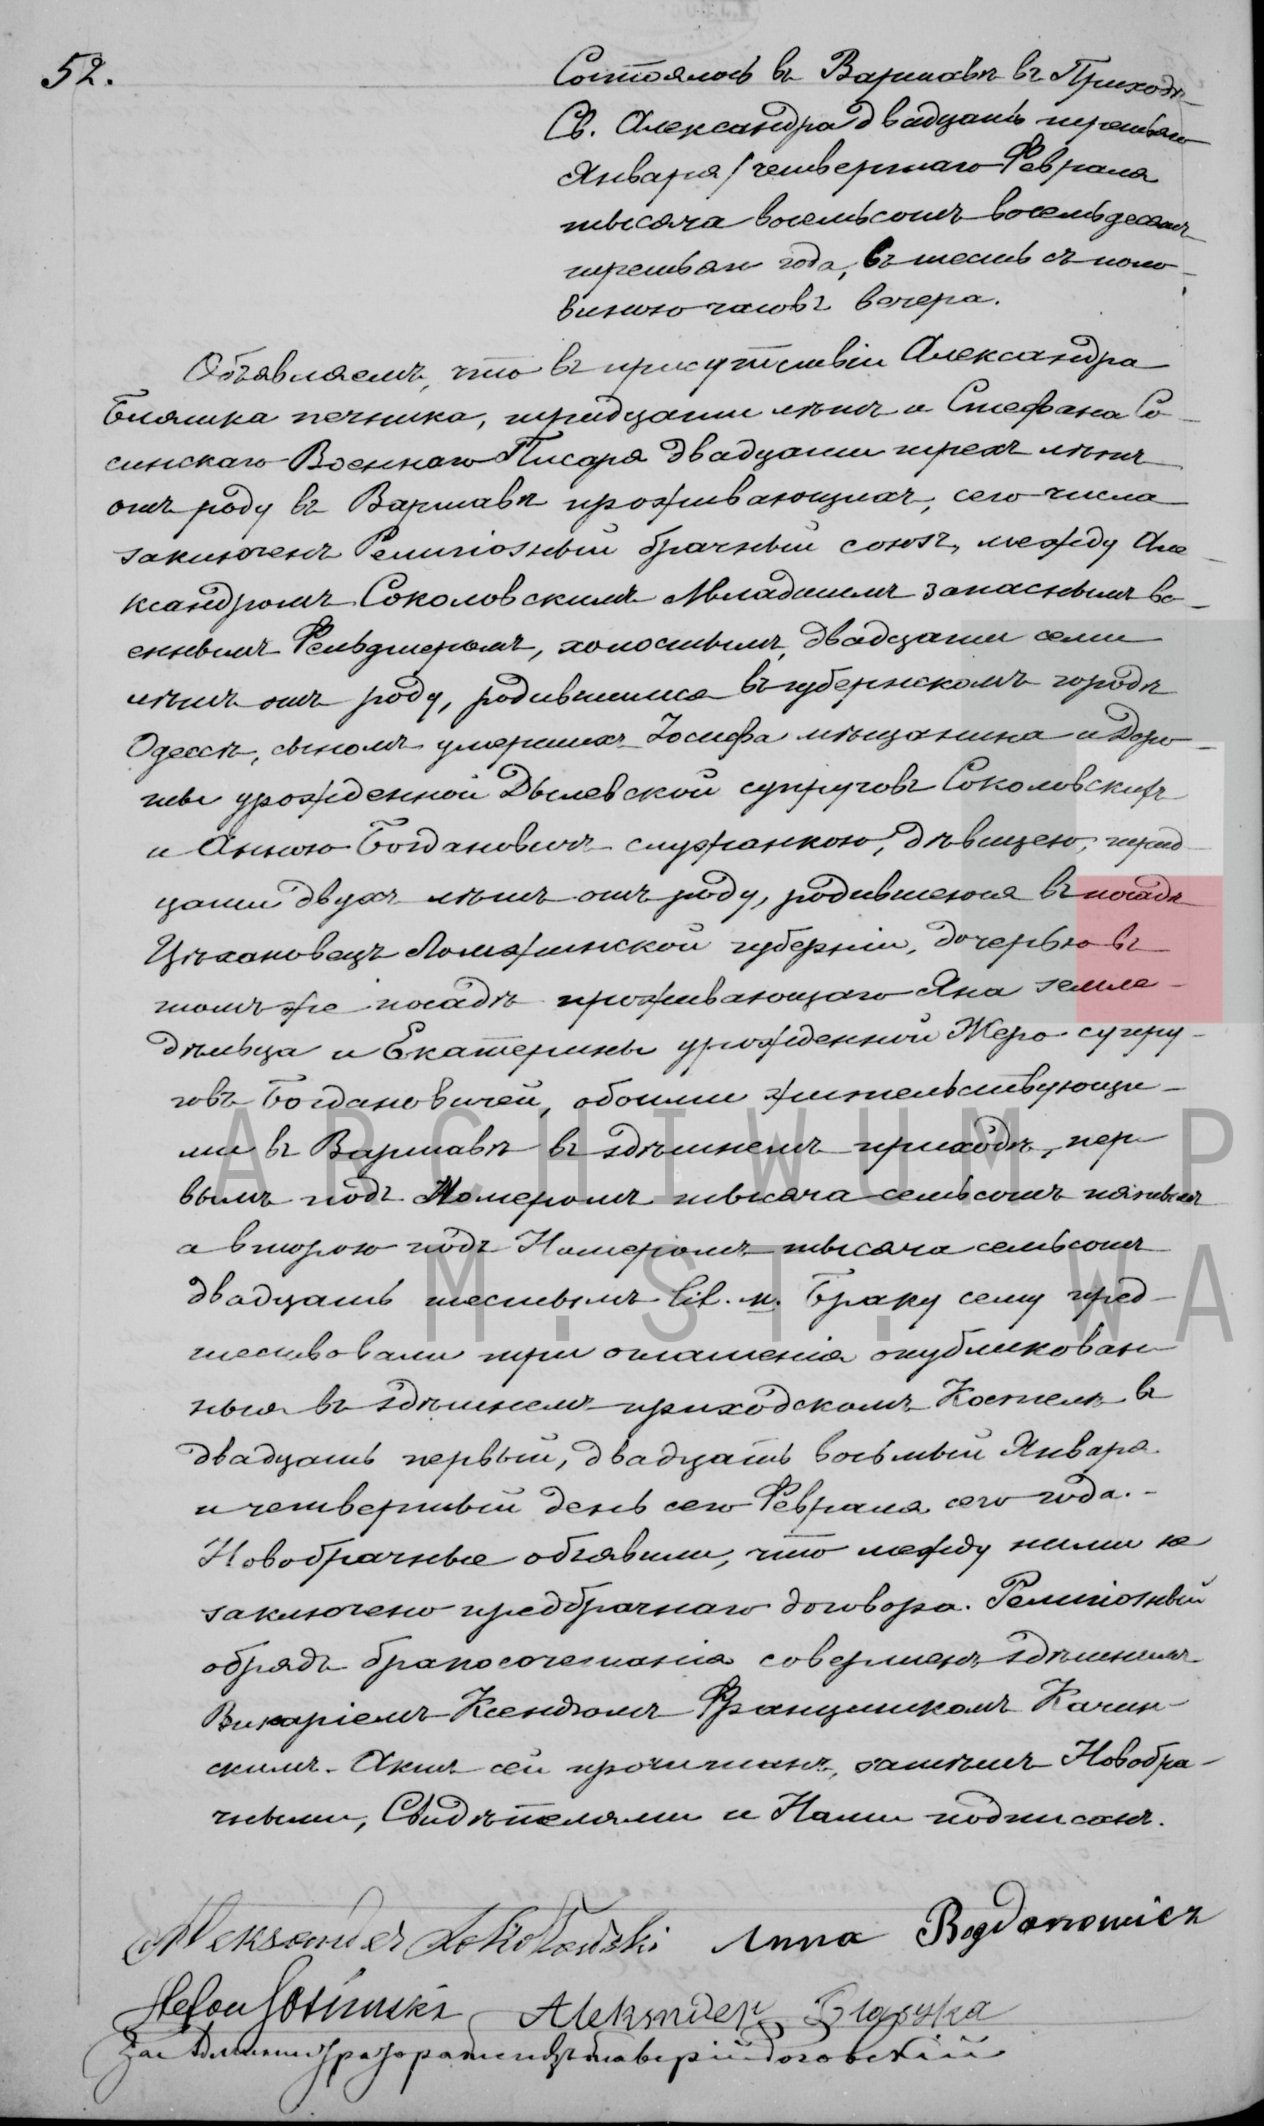 52.
Состоялось въ Варшавѣ въ Приходѣ
Св. Александра двадцать третьяго
Января / четвертаго Февраля
тысяча восемьсотъ восемьдесятъ
третьяго года, въ шесть съ поло-
виною часовъ вечера.
Объявляемъ, что въ присутствіи Александра
печника, тридцати лѣтъ и Стефана Со-
синскаго Военнаго Писаря двадцати трехъ лѣтъ
отъ роду въ Варшавѣ проживающихъ, сего числа
заключенъ Религіозный брачный союзъ, между Але-
ксандромъ Соколовскимъ Младшимъ запаснымъ во-
еннымъ Фельдшеромъ, холостымъ, двадцати семи
лѣтъ отъ роду, родившимся въ губернскомъ городѣ
Одессѣ, сыномъ умершихъ Іосифа мѣщанина и Доро-
теи урожденной Дылевской супруговъ Соколовскихъ
и Анною Богдановичъ служанкою, дѣвицею, трид-
цати двухъ лѣтъ отъ роду, родившеюся въ посадѣ
Цѣхановецъ Ломжинской губерніи, дочерью въ
томъ же посадѣ проживающаго Яна земле-
дѣльца и Екатерины урожденной Жеро супру-
говъ Богдановичей, обоими жительствующи-
ми въ Варшавѣ въ здѣшнемъ приходѣ, пер-
вымъ подъ Номеромъ тысяча семьсотъ пятымъ
а второю подъ Номеромъ тысяча семьсотъ
двадцать шестымъ lit. м. Браку сему пред-
шествовали три оглашенія опубликован-
ныя въ здѣшнемъ приходскомъ Костелѣ въ
двадцать первый, двадцать восьмый Января
и четвертый день сего Февраля сего года.-
Новобрачные объявили, что между ними не
заключено предбрачнаго договора. Религіозный
обрядъ бракосочетанія совершенъ здѣшнимъ
Викаріемъ Ксендзомъ Францишкомъ Качин-
скимъ. Актъ сей прочитанъ, затѣмъ Новобра-
чными, Свидѣтелями и Нами подписанъ.
Aleksander Sokołowski Anna Bogdanowicz
Stefan Sosinski Aleksander
За Администратора
ARCHIWUM P
M.ST. WA